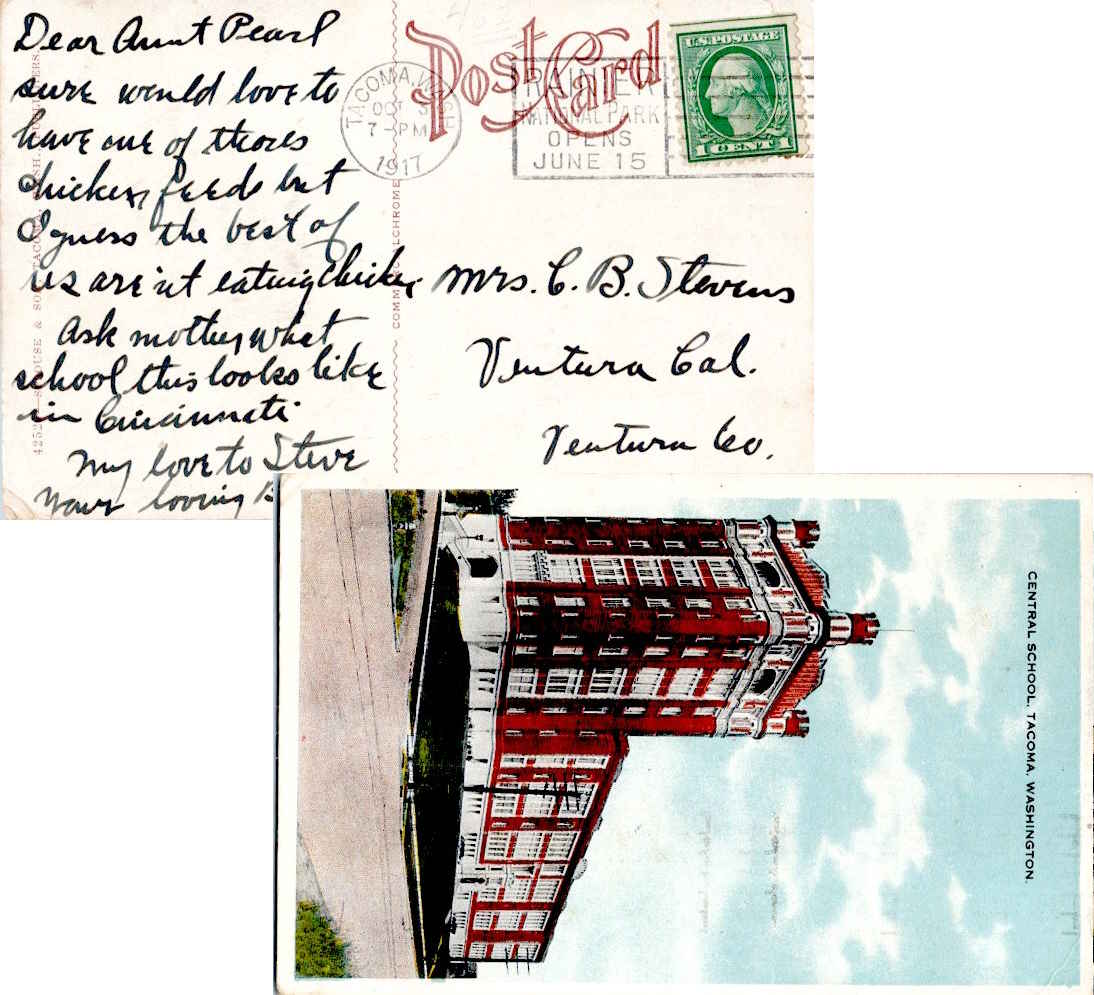 Dear Aunt Pearl
sure would love to
have one of thoes
chicken feeds but
I guess the best of
us are'nt eating chicken
Ask mother what
school this looks like
in Cincinnati
My love to Steve
Your loving B
Post Card
TACOMA, WASH.
OCT 3
7-PM
1917
RAINIER
NATIONAL PARK
OPENS
JUNE 15
U.S. POSTAGE
1 CENT 1
Mrs. C. B. Stevens
Ventura Cal.
Ventura Co.
COMMERCIALCHROME
CENTRAL SCHOOL, TACOMA, WASHINGTON.